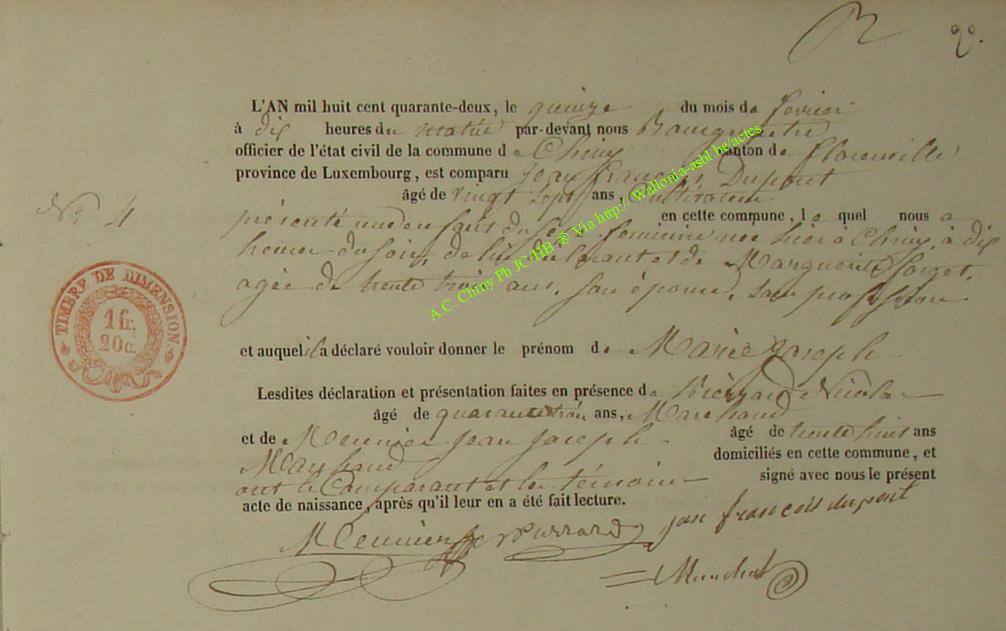 L'AN mil huit cent quarante-deux, le quinze du mois de fevrier
à dix heures du matin par-devant nous Bourgmestre
officier de l'état civil de la commune de Chiny canton de florenville
province de Luxembourg, est comparu Jean françois Dupont
âgé de vingt sept ans, Cultivateur
N° 4
en cette commune, le quel nous a
présenté un enfant du sexe feminin née hier à Chiny, à dix
heures du soir, de lui declarant et de Marguerite
agée de trente trois ans, son épouse, sans profession.
TIMBRE DE DIMENSION
1 fr.
20c.
et auquel il a déclaré vouloir donner le prénom de Marie Joseph
Lesdites déclaration et présentation faites en présence de Nicolas
âgé de quarante trois ans, Marchand
et de Meunier Jean Joseph âgé de trente huit ans
Marchand domiciliés en cette commune, et
ont le Comparant et les témoins signé avec nous le présent
acte de naissance, après qu'il leur en a été fait lecture.
Meunier jan francois dupont
A.C. Chiny Ph JC/HB ® Via http://Wallonia-asbl.be/actes